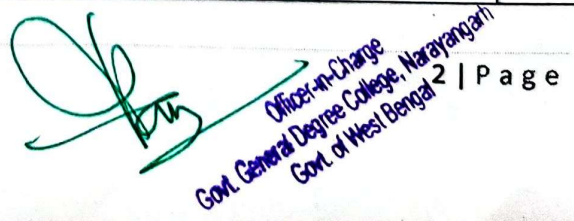 Officer-in-Charge
Govt. General Degree College, Narayangarh
Govt. of West Bengal
2 | P a g e